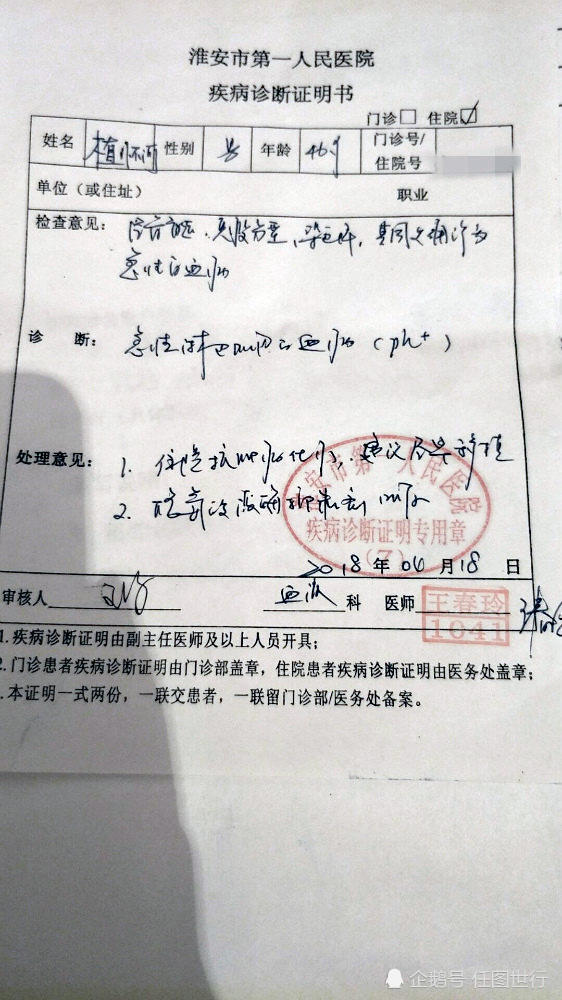 淮安市第一人民医院
疾病诊断证明书
门诊□ 住院☑
姓名 性别 男 年龄 46岁 门诊号/
住院号
单位（或住址） 职业
检查意见：
急性白血病
诊 断： 急性淋巴细胞白血病（ph+）
处理意见： 1.住院抗白血病化疗，建议尽早移植
2.
淮安市第一人民医院
疾病诊断证明专用章
（7）
2018 年 04 月 18 日
审核人 血液 科 医师 王春玲
1041
1.疾病诊断证明由副主任医师及以上人员开具；
2.门诊患者疾病诊断证明由门诊部盖章，住院患者疾病诊断证明由医务处盖章；
.本证明一式两份，一联交患者，一联留门诊部/医务处备案。
企鹅号 任图世行